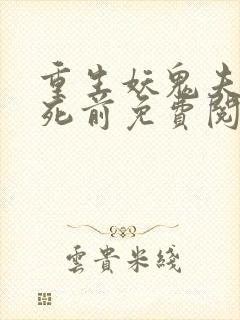 重生妖鬼夫
死前免費閱
雲貴米綫